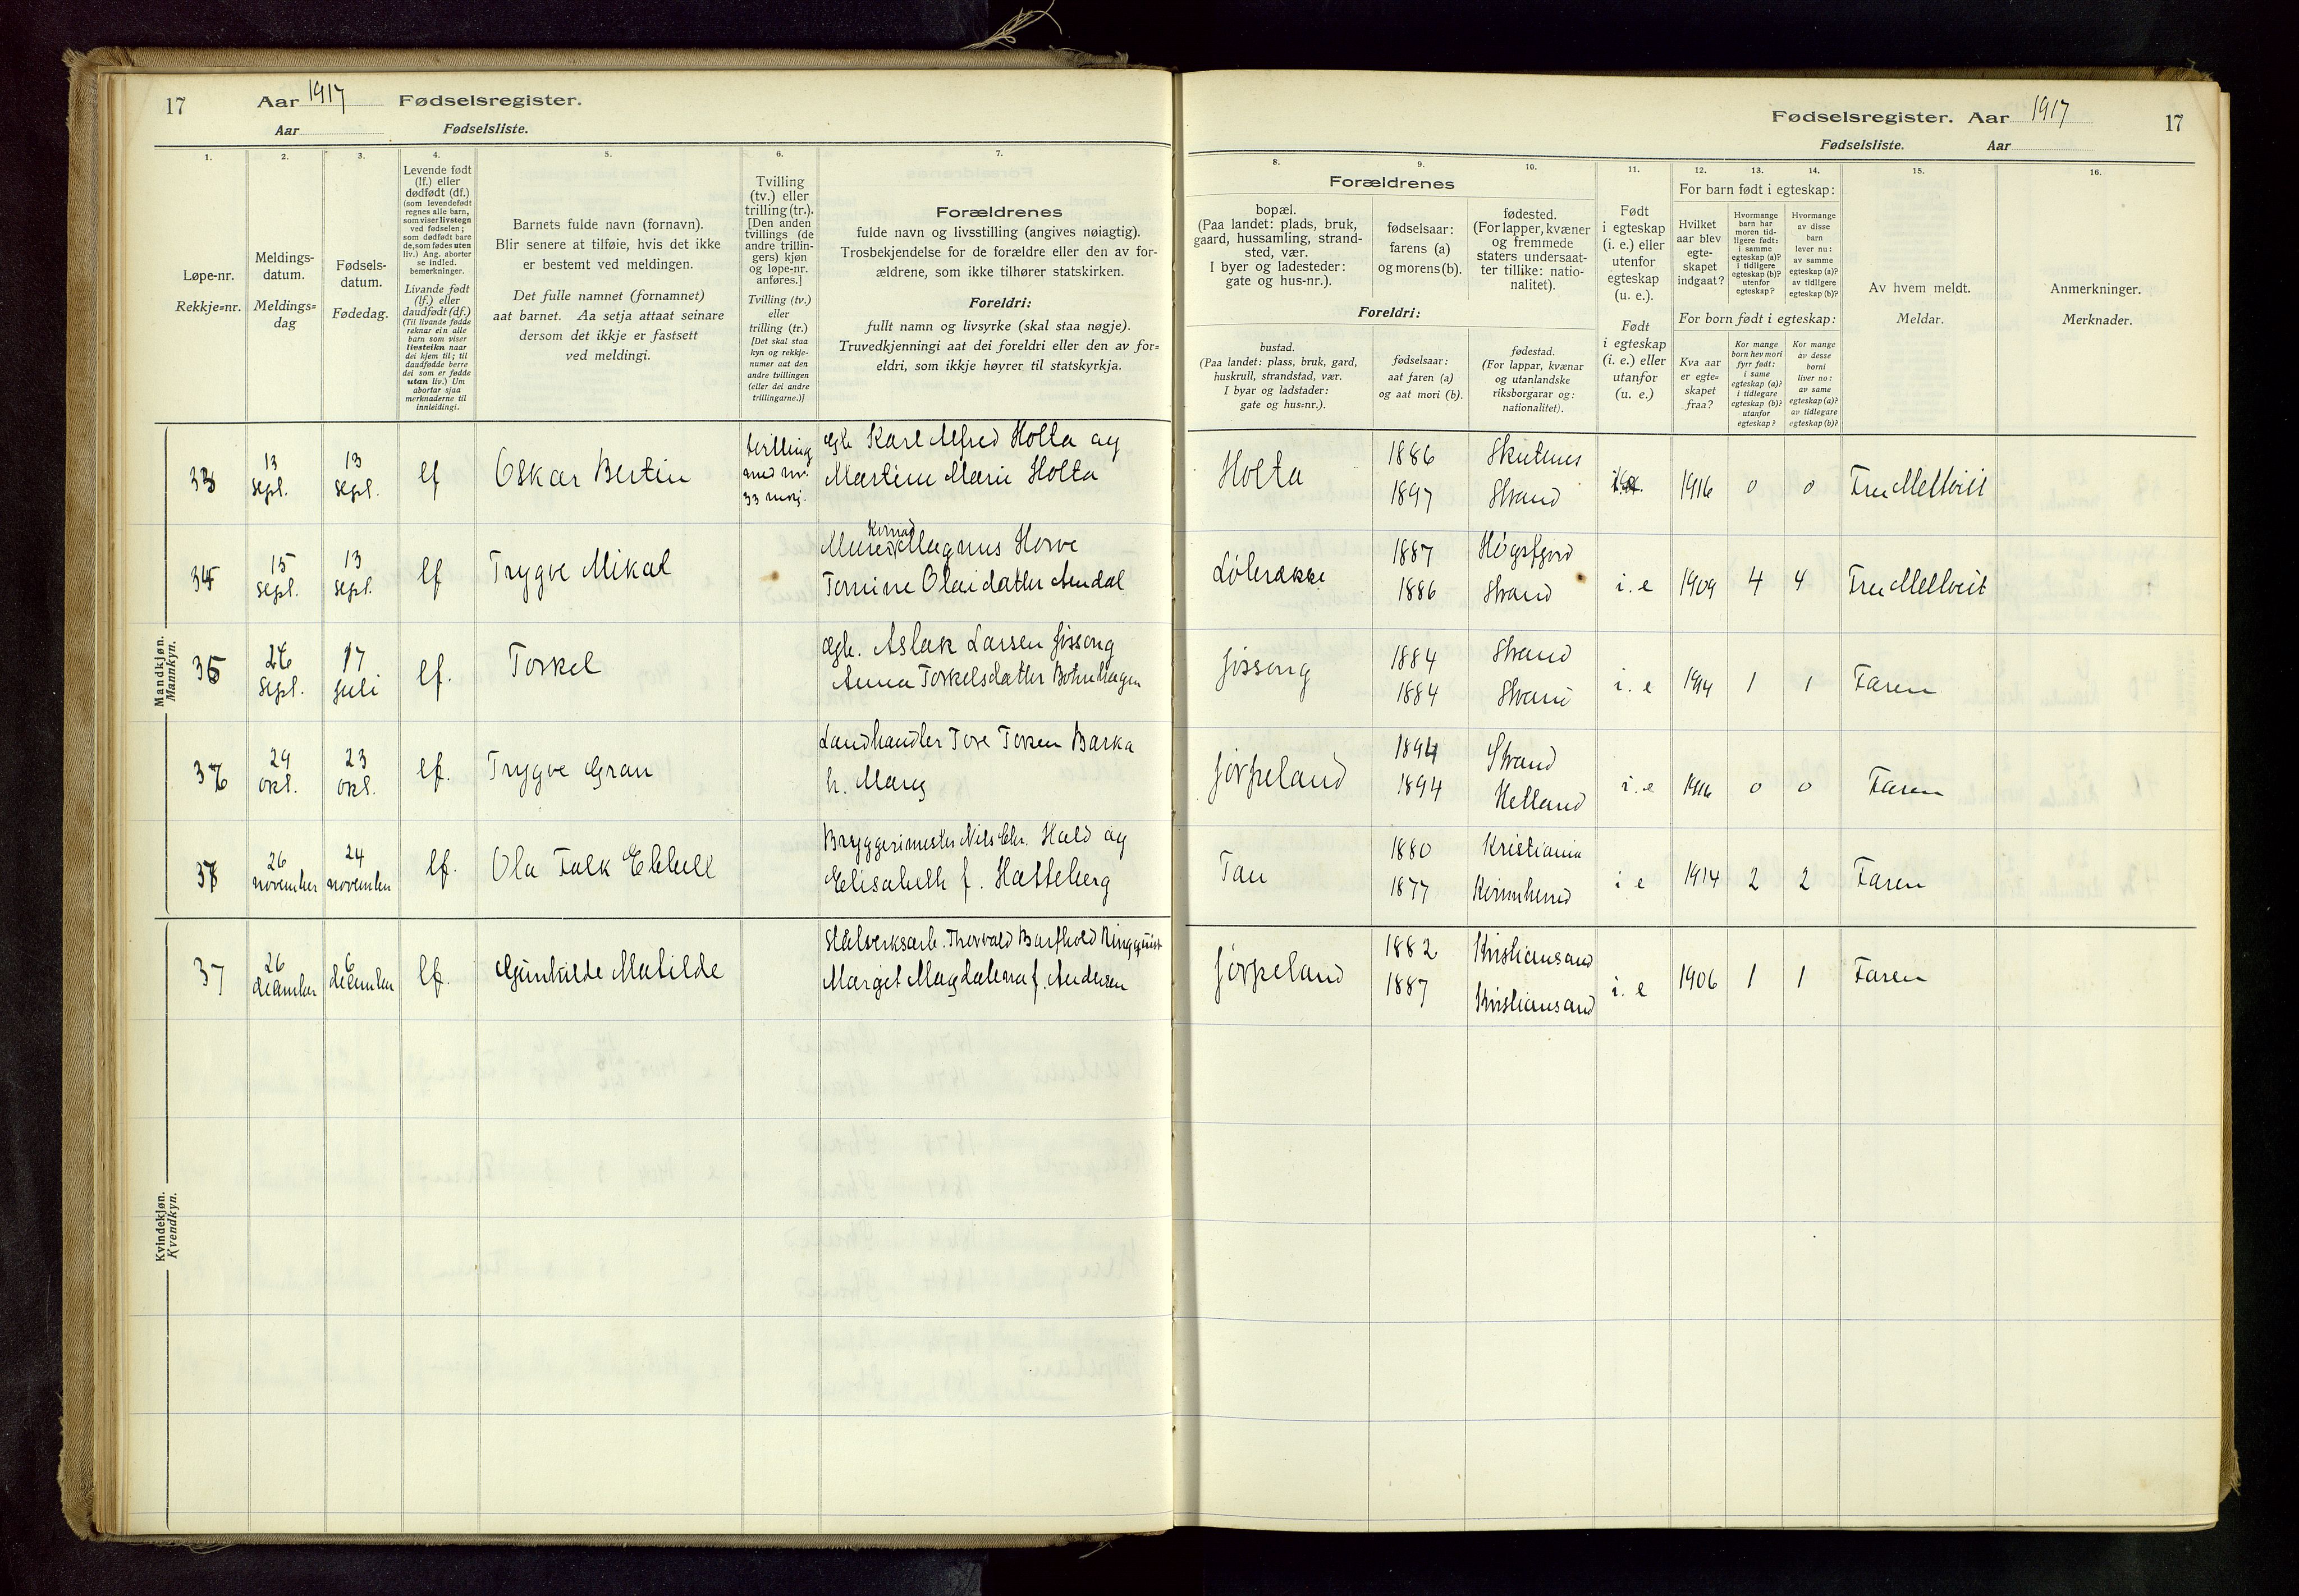 17 Aar 1917 Fødselsregister.
Aar Fødselsliste.
Fødselsregister. Aar 1917 17
Fødselsliste. Aar
1. 2. 3. 4. 5. 6. 7.
Løpe-nr.
Rekkje=nr.
Meldings-
datum.
Meldings=
dag
Fødsels-
datum.
Fødedag.
Levende født
(lf.) eller
dødfødt (df.)
(som levendefødt
regnes alle barn,
som viser livstegn
ved fødselen;
som dødfødt bare
de, som fødes uten
liv.) Ang. aborter
se indled.
bemerkninger.
Livande født
(lf.) eller
daudfødt (df.)
(Til livande fødde
reknar ein alle
barn som viser
livsteikn naar
dei kjem til; til
daudfødde berre
dei som er fødde
utan liv.) Um
abortar sjaa
merknaderne til
innleidingi.
Barnets fulde navn (fornavn).
Blir senere at tilføie, hvis det ikke
er bestemt ved meldingen.
Det fulle namnet (fornamnet)
aat barnet. Aa setja attaat seinare
dersom det ikkje er fastsett
ved meldingi.
Tvilling
(tv.) eller
trilling (tr.).
[Den anden
tvillings (de
andre trillin-
gers) kjøn
og løpe-nr.
anføres.]
Tvilling (tv.)
eller
trilling (tr.)
[Det skal staa
kyn og rekkje-
numer aat den
andre tvillingen
(eller dei andre
trillingarne.)]
Forældrenes
fulde navn og livsstilling (angives nøiagtig).
Trosbekjendelse for de forældre eller den av for-
ældrene, som ikke tilhører statskirken.
Foreldri:
fullt namn og livsyrke (skal staa nøgje).
Truvedkjenningi aat dei foreldri eller den av for=
eldri, som ikkje høyrer til statskyrkja.
8. 9. 10. 11. 12. 13. 14. 15. 16.
Forældrenes
bopæl.
(Paa landet: plads, bruk,
gaard, hussamling, strand-
sted, vær.
I byer og ladesteder:
gate og hus-nr.).
fødselsaar:
farens (a)
og morens (b).
fødested.
(For lapper, kvæner
og fremmede
staters undersaat-
ter tillike: natio-
nalitet).
Foreldri:
bustad.
(Paa landet: plass, bruk, gard,
huskrull, strandstad, vær.
I byar og ladstader:
gate og hus=nr.).
fødselsaar:
aat faren (a)
og aat mori (b).
fødestad.
(For lappar, kvænar
og utanlandske
riksborgarar og:
nationalitet).
Født
i egteskap
(i. e.) eller
utenfor
egteskap
(u. e.).
Født
i egteskap
(i. e.) eller
utanfor
(u. e.)
For barn født i egteskap:
Hvilket
aar blev
egte-
skapet
indgaat?
Hvormange
barn har
moren tid-
ligere født:
i samme
egteskap (a)?
i tidligere
egteskap (b)?
utenfor
egteskap?
Hvormange
av disse
barn
lever nu:
av samme
egteskap (a)?
av tidligere
egteskap (b)?
For born født i egteskap:
Kva aar
er egte=
skapet
fraa?
Kor mange
born hev mori
fyrr født:
i same
egteskap (a)?
i tidlegare
egteskap (b)?
utanfor
egteskap?
Kor mange
av desse
borni
liver no:
av same
egteskap (a)?
av tidlegare
egteskap (b)?
Av hvem meldt.
Meldar.
Anmerkninger.
Merknader.
Mandkjøn.
Mannkyn.
33 13 sept. 13 sept. lf Oskar Bertin
Karl Alfred Holta og
Martine Marie Holta
Holta 1886 1897 Strand 1916 0 0
34 15 sept. 13 sept. lf Trygve Mikal
Magnus Horve
Olaidatter
1887 Høgsfjord
1886 Strand i. e 1909 4 4
35 26 sept. 17 juli lf. Torkel
Aslak Larsen Jøssang
Anna Torkelsdatter
Jøssang 1884 Strand
1884 Strand i. e 1914 1 1 Faren
36 29 okt. 23 okt. lf. Trygve Gran
Landhandler Tore Barka
h. Marg
Jørpeland 1894 Strand
1894 Hetland i. e 1916 0 0 Faren
37 26 november 24 november lf. Ola Falk Ebbell
Bryggerimester Nils Chr. Hald og
Elisabeth f. Hatteberg
Tau 1880 Kristiania
1877 Kvinnherred i e 1914 2 2 Faren
Kvindekjøn.
Kvendkyn.
37 26 december 6 december lf. Gunhilde Matilde
Stålverksarb. Thorvald Barthold Ringquist
Margit Magdalena f. Andersen
Jørpeland 1882 Kristiansand
1887 Kristiansand i. e 1906 1 1 Faren